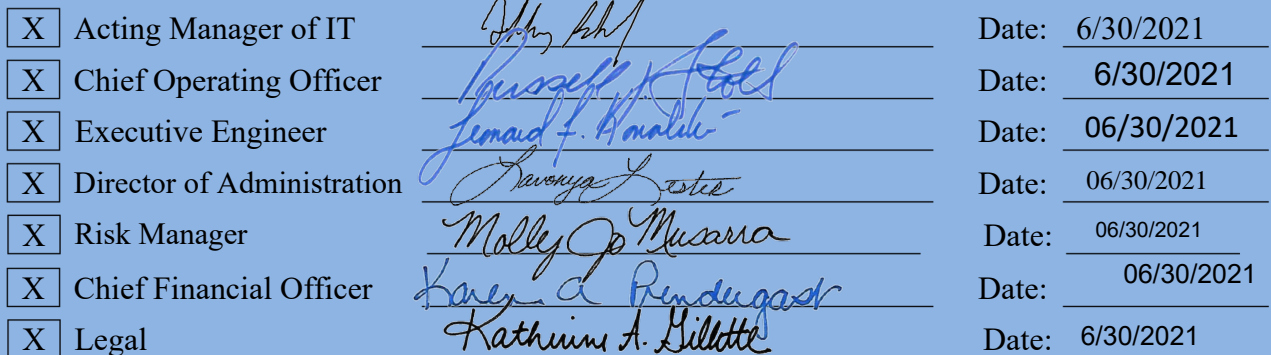 X Acting Manager of IT Date: 6/30/2021
X Chief Operating Officer Russell Date: 6/30/2021
X Executive Engineer Date: 06/30/2021
X Director of Administration Date: 06/30/2021
X Risk Manager Molly Jo Musarra Date: 06/30/2021
X Chief Financial Officer Karen A Pendergast Date: 06/30/2021
X Legal Katherine A. Gillette Date: 6/30/2021